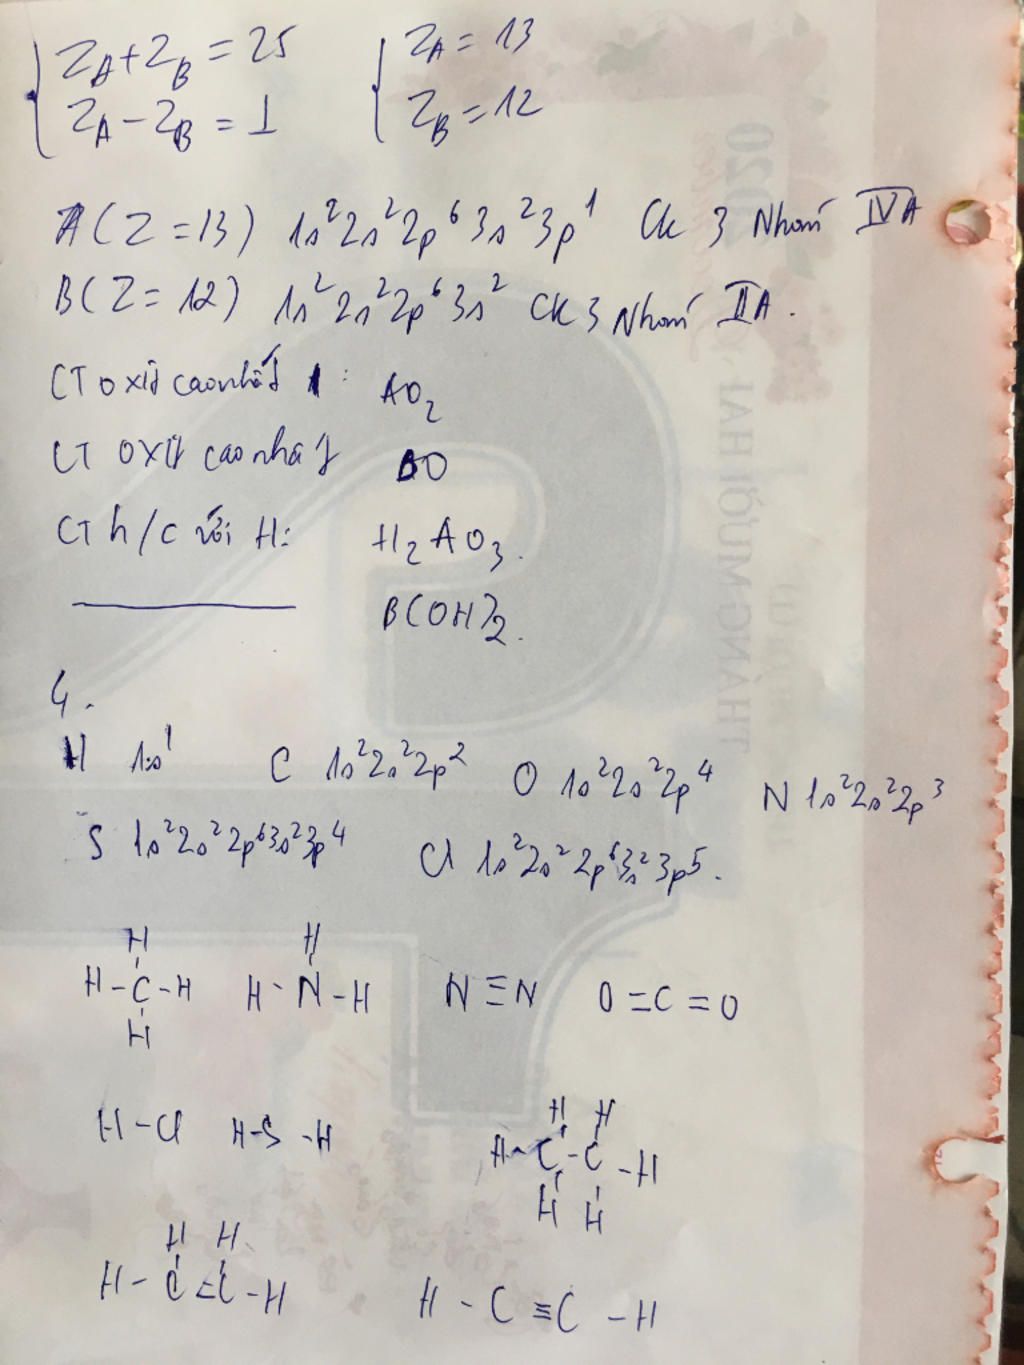 Z_A + Z_B = 25    Z_A = 13
Z_A − Z_B = 1    Z_B = 12
A (Z = 13) 1s²2s²2p⁶3s²3p¹ CK 3 Nhóm IVA
B (Z = 12) 1s²2s²2p⁶3s² CK 3 Nhóm IIA.
CT oxit cao nhất : AO₂
CT oxit cao nhất BO
CT h/c với H: H₂AO₃.
B(OH)₂.
4.
H 1s¹ C 1s²2s²2p² O 1s²2s²2p⁴ N 1s²2s²2p³
S 1s²2s²2p⁶3s²3p⁴ Cl 1s²2s²2p⁶3s²3p⁵.
H H
H-C-H H-N-H N≡N O=C=O
H
H-Cl H-S-H
H H
H-C-C-H
H H
H H
H-C=C-H H-C≡C-H